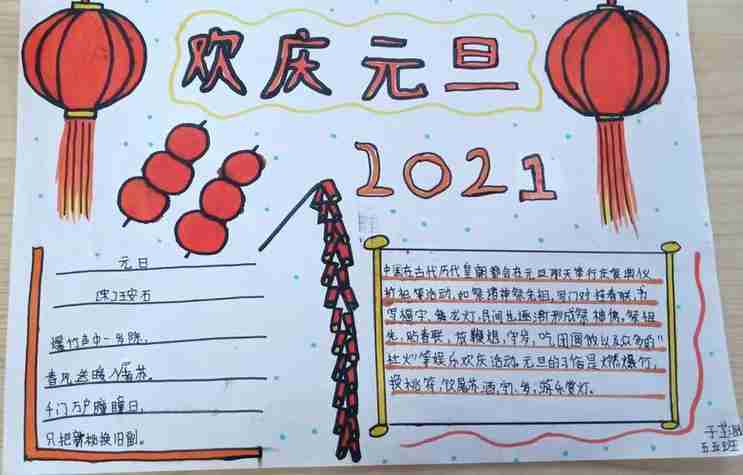 欢庆元旦
2021
元日
[宋]王安石
爆竹声中一岁除,
春风送暖入屠苏。
千门万户瞳瞳日,
只把新桃换旧
中国在古代历代皇朝都会在元旦那天举行庆贺典仪
祈祀等活动,如祭诸神祭先祖,写门对挂春联,书
写福字、舞龙灯,民间也逐渐形成祭神佛、祭祖
先、贴春联、放鞭炮、守岁、吃团圆饭以及众多的"
社火"等娱乐欢庆活动。元旦的习俗是燃爆竹,
饮屠苏酒,守岁,
五五班